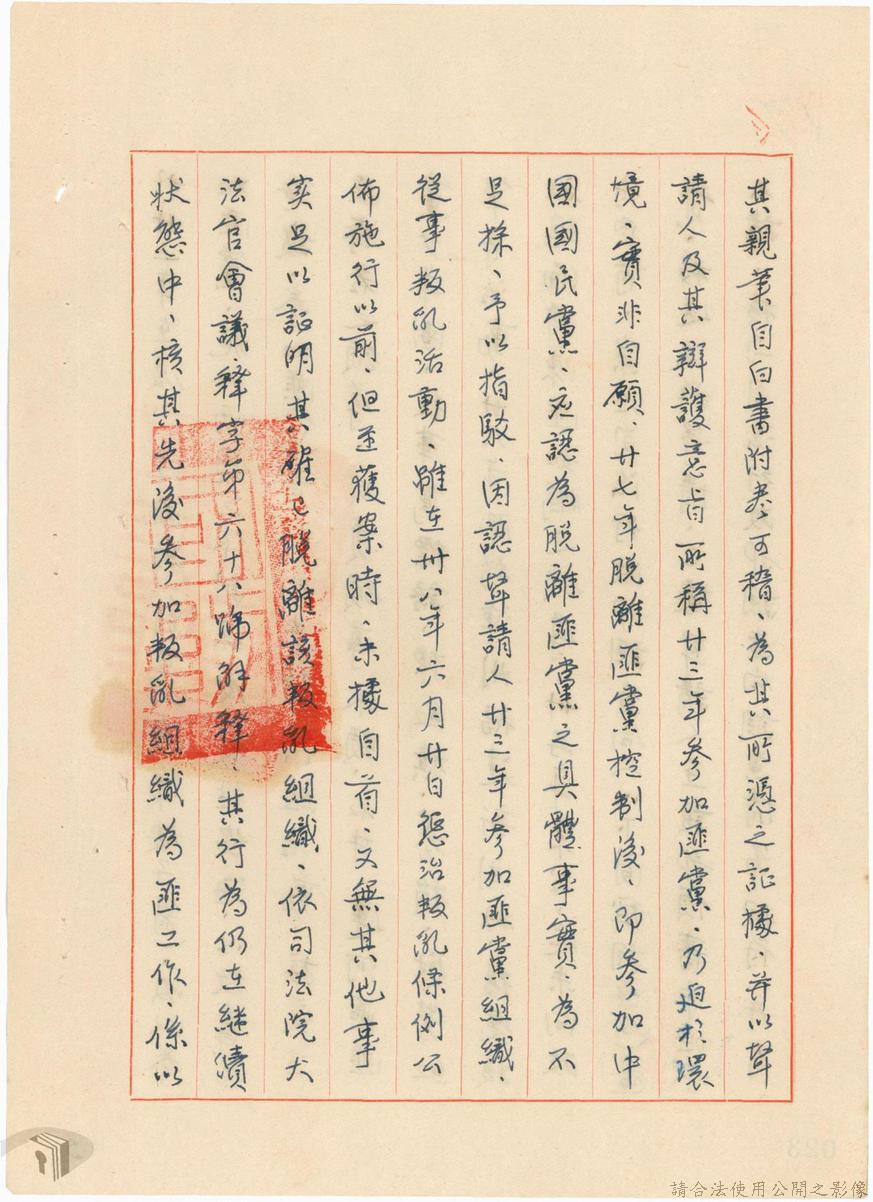 其親筆自白書附卷可稽、為其所憑之証據、并以聲
請人及其辯護意旨所稱廿三年參加匪黨、乃迫於環
境、實非自願、廿七年脫離匪黨控制後、即參加中
國國民黨、应認為脫離匪黨之具體事實、為不
足採、予以指駁、因認聲請人廿三年參加匪黨組織、
從事叛乱活動、雖在卅八年六月廿日懲治叛乱條例公
佈施行以前、但至獲案時、未據自首、又無其他事
实足以証明其確已脫離該叛乱組織、依司法院大
法官會議釋字第六十八號解釋、其行為仍在繼續
狀態中、核其先後參加叛乱組織為匪工作、係以
請合法使用公開之影像